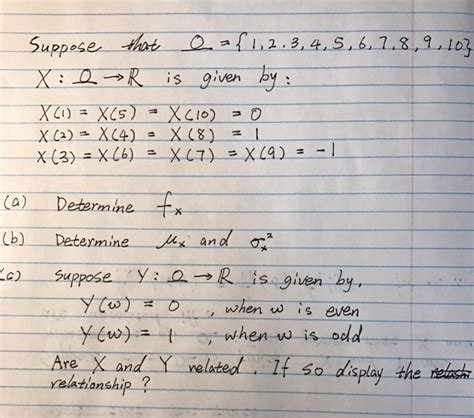 Suppose that Ω = {1,2,3,4,5,6,7,8,9,10}
X : Ω → ℝ is given by :
X(1) = X(5) = X(10) = 0
X(2) = X(4) = X(8) = 1
X(3) = X(6) = X(7) = X(9) = -1
(a) Determine fₓ
(b) Determine μₓ and σₓ²
(c) Suppose Y : Ω → ℝ is given by,
Y(ω) = 0 , when ω is even
Y(ω) = 1 , when ω is odd
Are X and Y related. If so display the
relationship ?